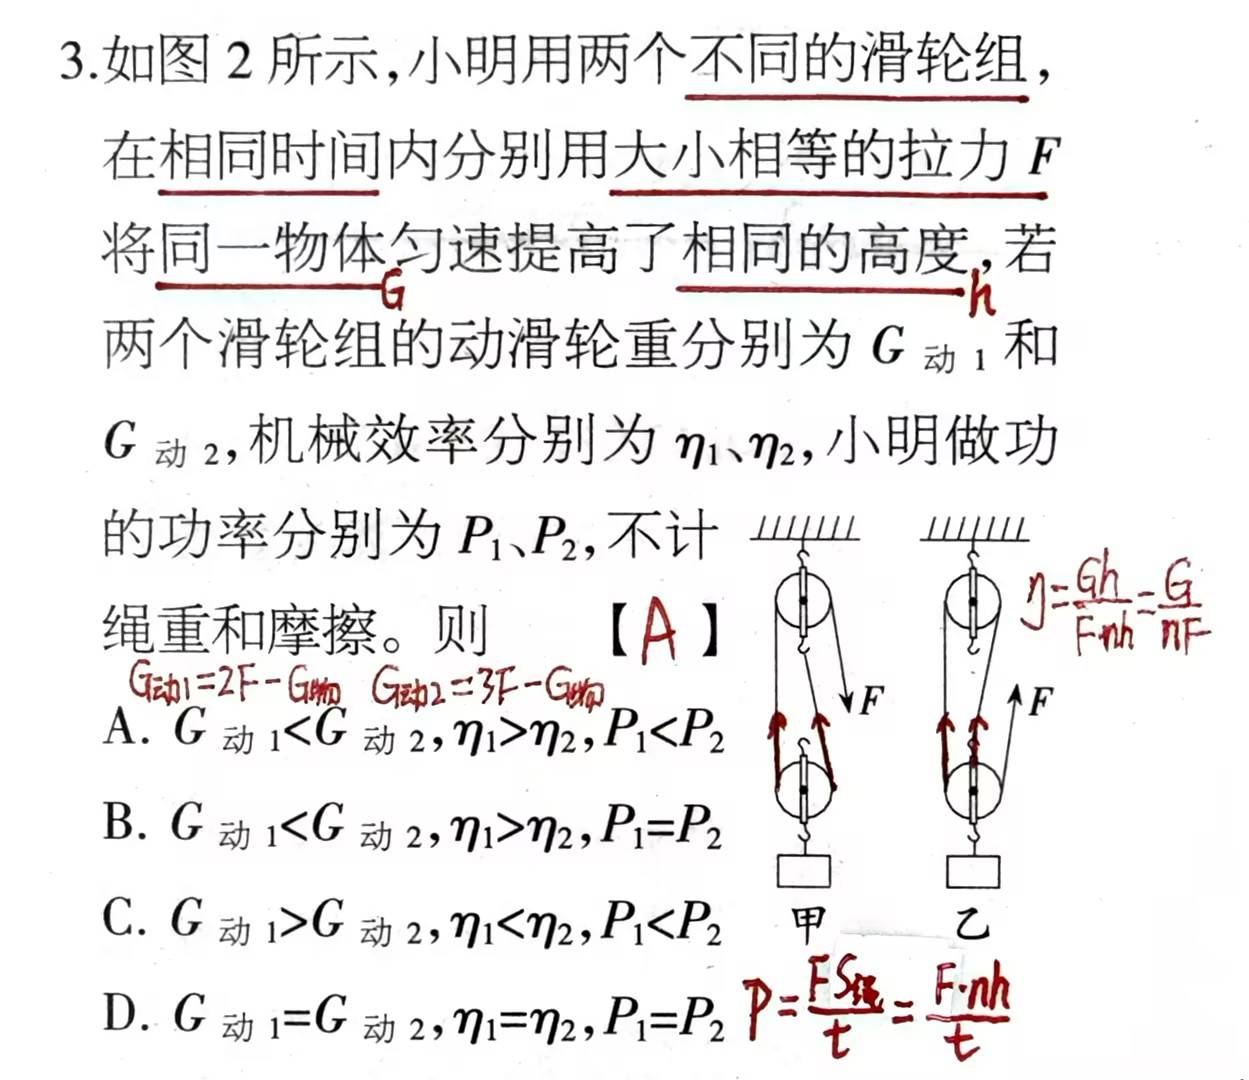 3.如图 2 所示,小明用两个不同的滑轮组,
在相同时间内分别用大小相等的拉力 F
将同一物体匀速提高了相同的高度,若
G h
两个滑轮组的动滑轮重分别为 G 动 1 和
G 动 2,机械效率分别为 η1、η2,小明做功
的功率分别为 P1、P2,不计
绳重和摩擦。则 【A】
η=Gh/F·nh=G/nF
G动1=2F-G物 G动2=3F-G物
A. G 动 1<G 动 2,η1>η2,P1<P2
B. G 动 1<G 动 2,η1>η2,P1=P2
C. G 动 1>G 动 2,η1<η2,P1<P2
D. G 动 1=G 动 2,η1=η2,P1=P2
F
F
甲 乙
P=FS绳/t=F·nh/t